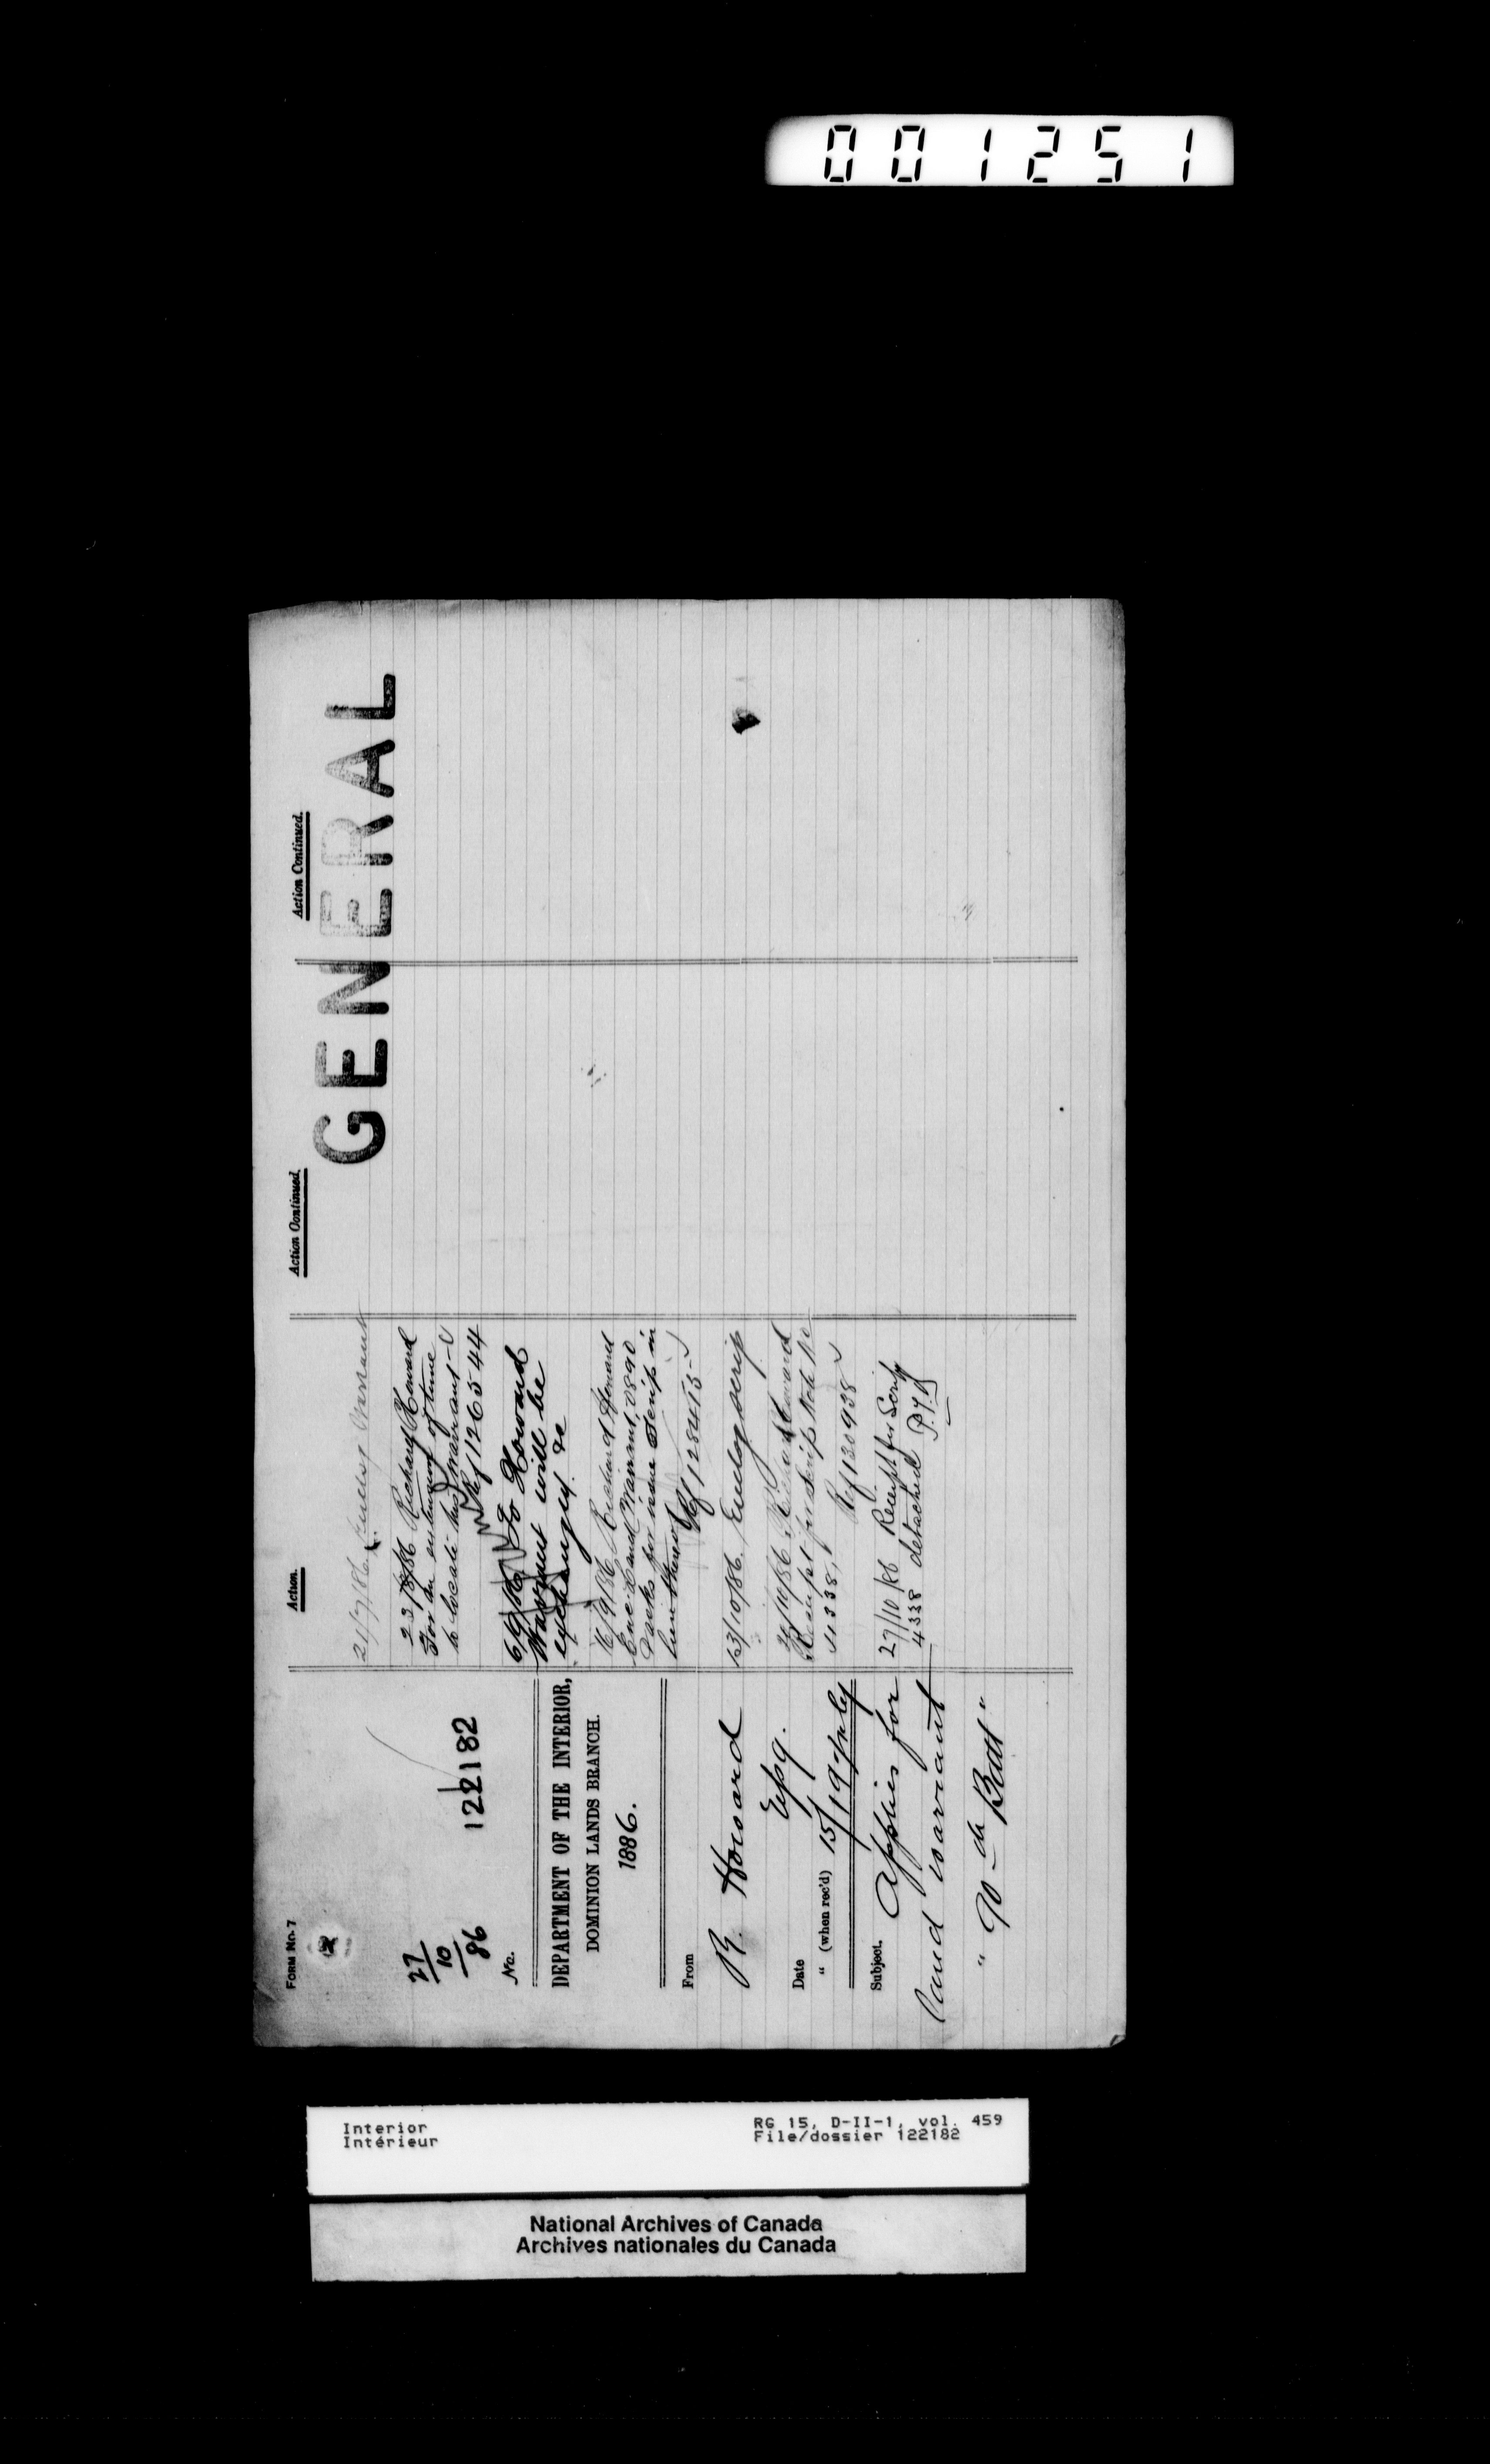 001251
FORM No. 7
27/10/86
No. 122182
DEPARTMENT OF THE INTERIOR,
DOMINION LANDS BRANCH.
1886.
From
R. Howard
Esq.
Date 15/19 July
" (when rec'd)
Subject. Applies for
land warrant
" 90th Batt "
Action.
21/7/86 Warrant
23/8/86 Richard Howard
For an extension of time
to locate his warrant
Ref 126544
6/9/86 To Howard
Warrant will be
exchanged &c
16/9/86 Richard Howard
Enc Land Warrant 0890
asks for issue Scrip in
lieu thereof
Ref 128415
13/10/86. Enclos scrip
Richard Howard
Receipt for Scrip Note No
4338, Ref 130938
27/10/86 Receipt for Scrip
4338 detached
Action Continued.
Action Continued.
GENERAL
Interior
Intérieur
RG 15, D-II-1, vol. 459
File/dossier 122182
National Archives of Canada
Archives nationales du Canada